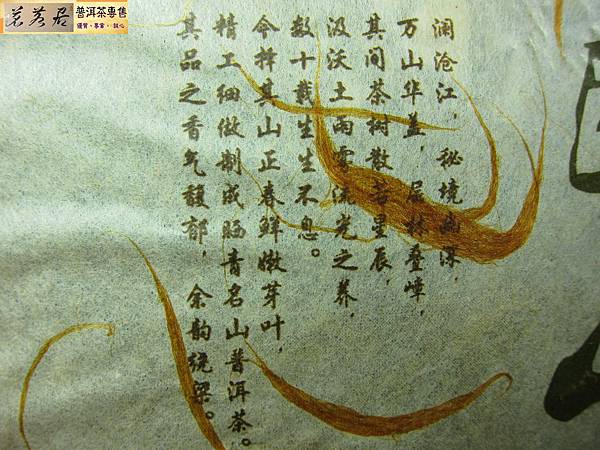 茗芳居
普洱茶專售
優質。專業。誠心
澜沧江，秘境幽深，
万山华盖，层林叠嶂，
其间茶树散若星辰，
汲沃土雨雾流光之养，
数十载生生不息。
今择其山正春鲜嫩芽叶，
精工细做制成晒青名山普洱茶。
其品之香气馥郁，余韵绕梁。